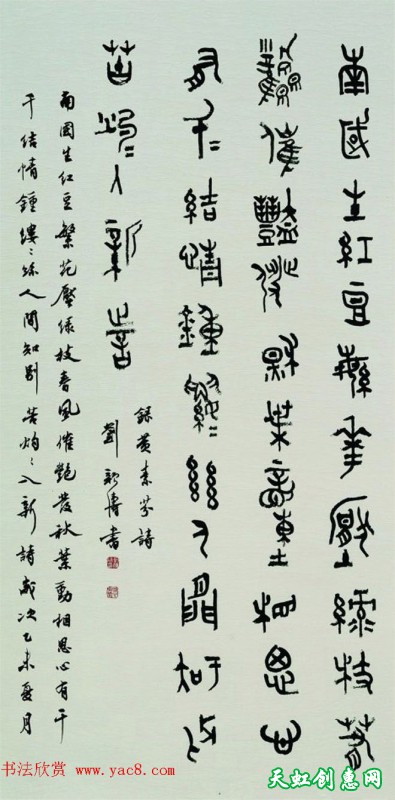 南國生紅豆繁華壓綠枝春
風催豔發秋葉動相思心
有千〻結情鍾縷〻絲人間知別
苦灼〻入新詩
錄黄素芬詩
劉書
南國生红豆繁花壓绿枝春風催艷發秋葉動相思心有千
千结情鍾縷〻絲人間知别苦灼〻入新詩歲次乙未夏月
书法欣赏 www.yac8.com
天虹创惠网